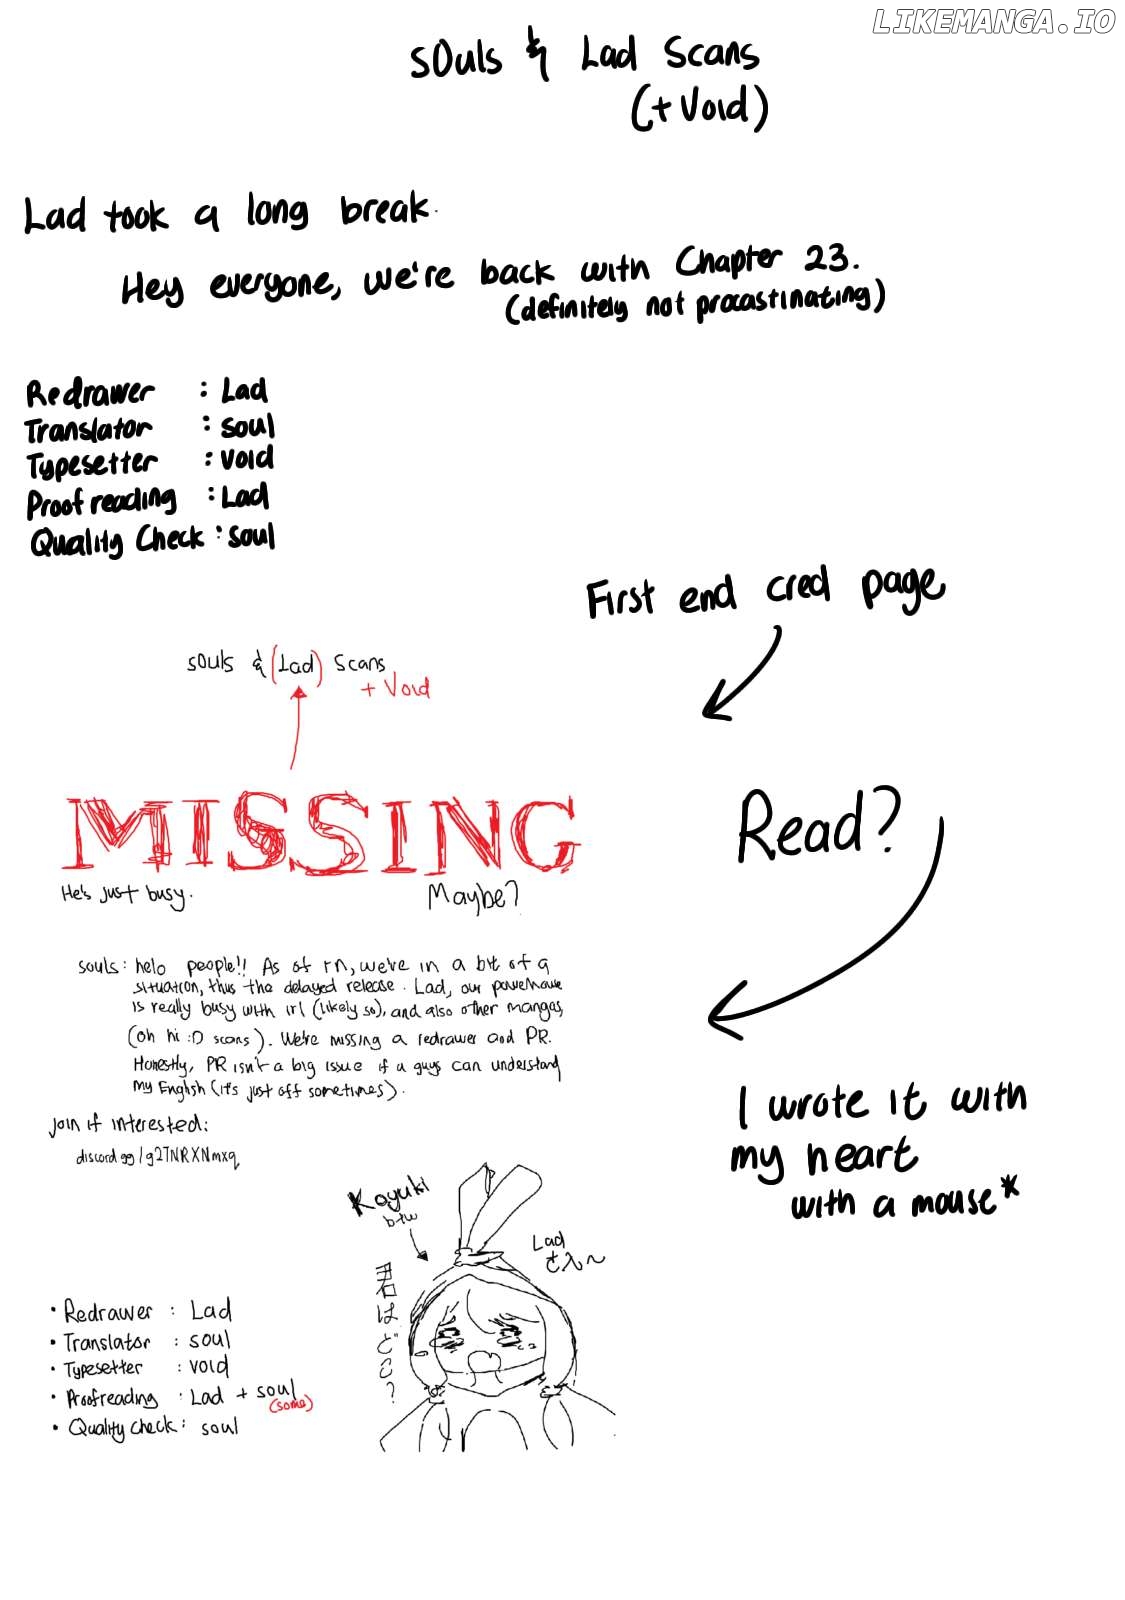 LIKEMANGA.IO
sOuls & Lad Scans
(+Void)
Lad took a long break.
Hey everyone, we're back with Chapter 23.
(definitely not procastinating)
Redrawer : Lad
Translator : soul
Typesetter : void
Proofreading : Lad
Quality Check : soul
First end cred page
sOuls & (Lad) Scans
+ Void
MISSING
He's just busy.
Maybe?
Read?
souls: helo people!! As of rn, we're in a bit of a
situation, thus the delayed release. Lad, our powerhouse
is really busy with irl (likely so), and also other mangas,
(oh hi :D scans). We're missing a redrawer and PR.
Honestly, PR isn't a big issue if a guys can understand
my English (it's just off sometimes).
Join if interested:
discord.gg/g2TNRXNmxq
I wrote it with
my heart
with a mouse*
Koyuki
btw
Lad
さん~
はどこ?
• Redrawer : Lad
• Translator : soul
• Typesetter : void
• Proofreading : Lad + soul
(some)
• Quality check : soul